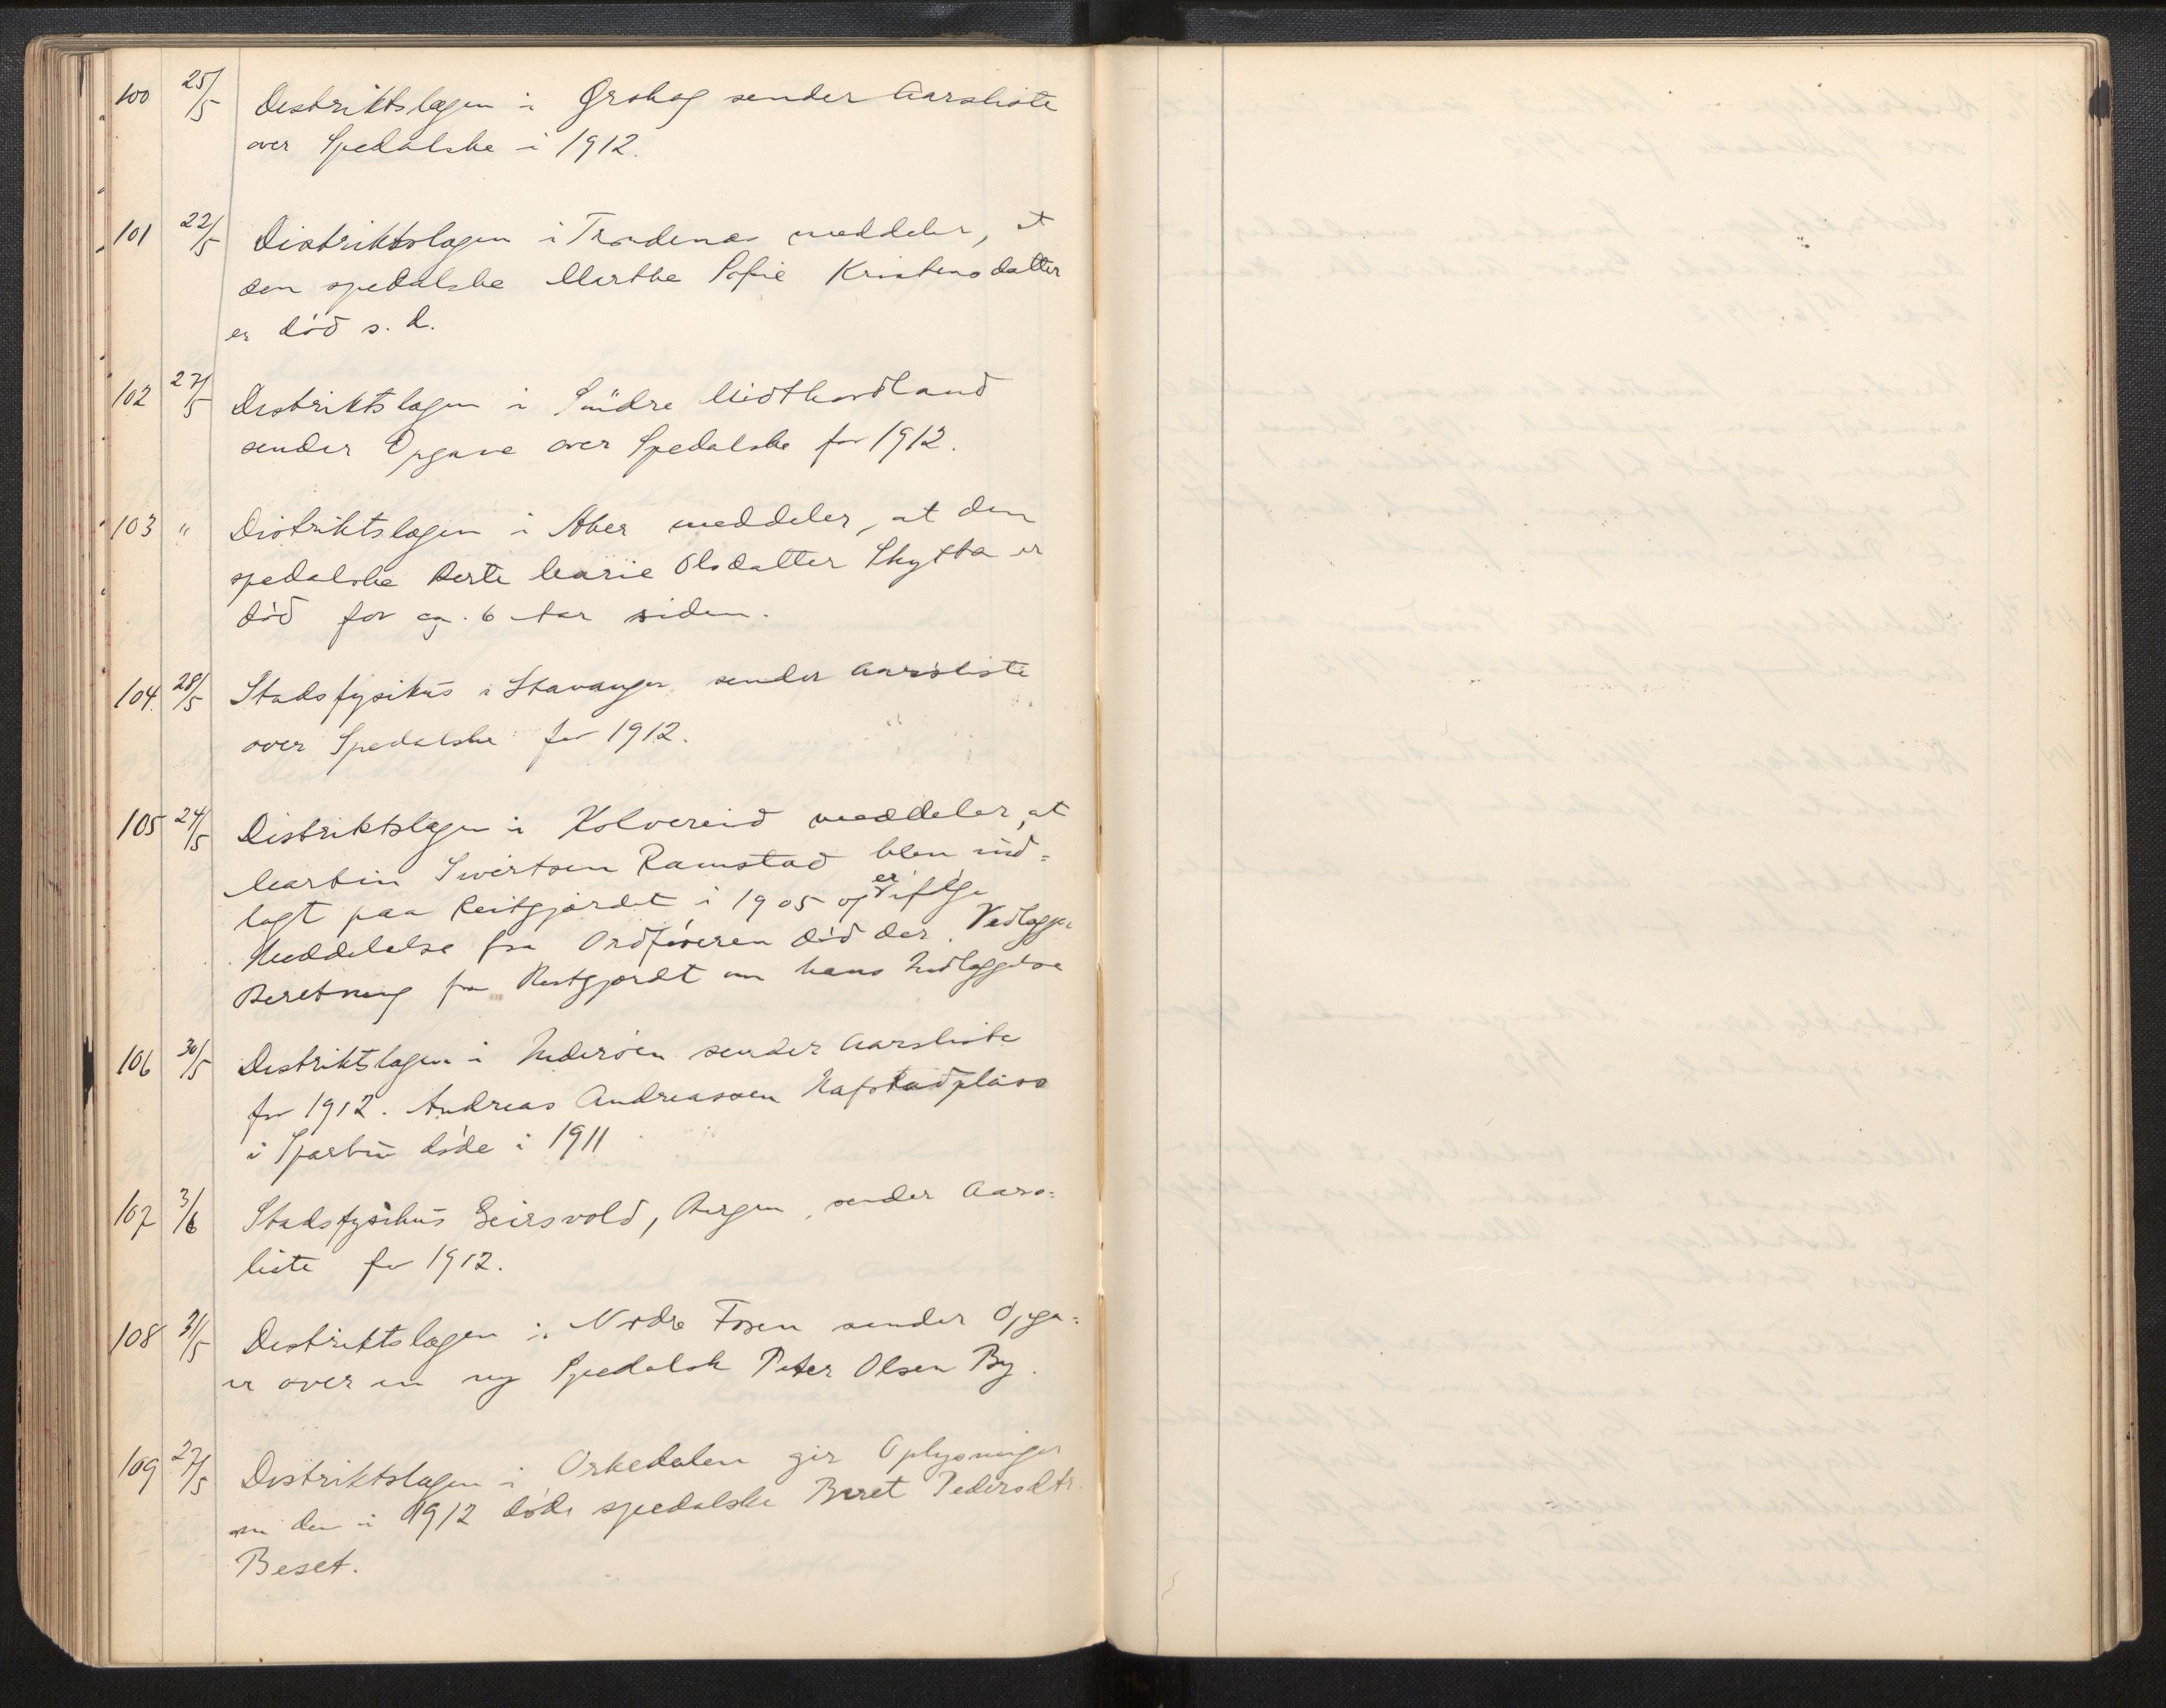 100 25/5 Distriktslægen i Ørskog sender Aarsliste
over Spedalske i 1912.
101 22/5 Distriktslægen i Trondenes meddeler, at
den spedalske Marthe Sofie Kristensdatter
er død s. d.
102 27/5 Distriktslægen i Søndre Midthordland
sender Opgave over Spedalske for 1912.
103 " Distriktslægen i Aker meddeler, at den
spedalske Berte Marie Olsdatter Skytta er
død for ca. 6 Aar siden.
104 28/5 Stadsfysikus i Stavanger sender Aarsliste
over Spedalske for 1912.
105 24/5 Distriktslægen i Kolvereid meddeler, at
Martin Sivertsen Ramstad blev ind=
lagt paa Reitgjærdet i 1905 og er ifølge
Meddelelse fra Ordføreren død der. Vedlægger
Beretning fra Reitgjærdet om hans Indlæggelse
106 30/5 Distriktslægen i Inderøen sender Aarsliste
for 1912. Andreas Andreassen Hafstadplass
i Sparbu døde i 1911
107 3/6 Stadsfysikus Geirsvold, Bergen, sender Aars=
liste for 1912.
108 31/5 Distriktslægen i Nordre Fosen sender Opga=
ve over en ny Spedalsk Peter Olsen By.
109 27/5 Distriktslægen i Orkedalen gir Oplysninger
om den i 1912 døde spedalske Beret Pedersdtr.
Beset.